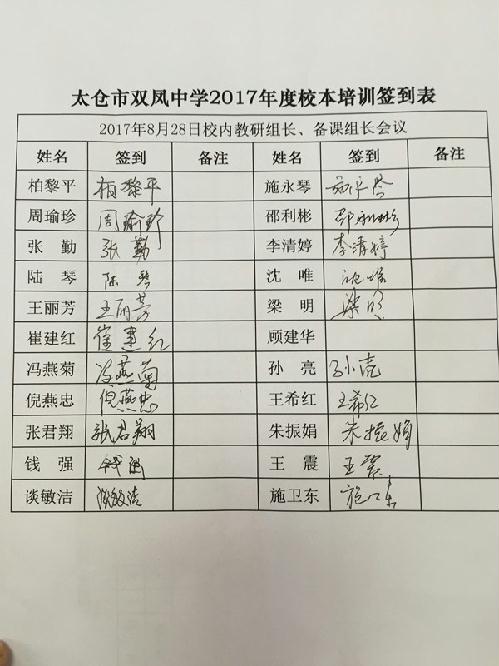 太仓市双凤中学2017年度校本培训签到表
2017年8月28日校内教研组长、备课组长会议
姓名 签到 备注 姓名 签到 备注
柏黎平 柏黎平 施永琴 施永琴
周瑜珍 周瑜珍 邵利彬 邵利彬
张勤 张勤 李清婷 李清婷
陆琴 陆琴 沈唯 沈唯
王丽芳 王丽芳 梁明 梁明
崔建红 崔建红 顾建华
冯燕菊 冯燕菊 孙亮 孙亮
倪燕忠 倪燕忠 王希红 王希红
张君翔 张君翔 朱振娟 朱振娟
钱强 钱强 王震 王震
谈敏洁 谈敏洁 施卫东 施卫东